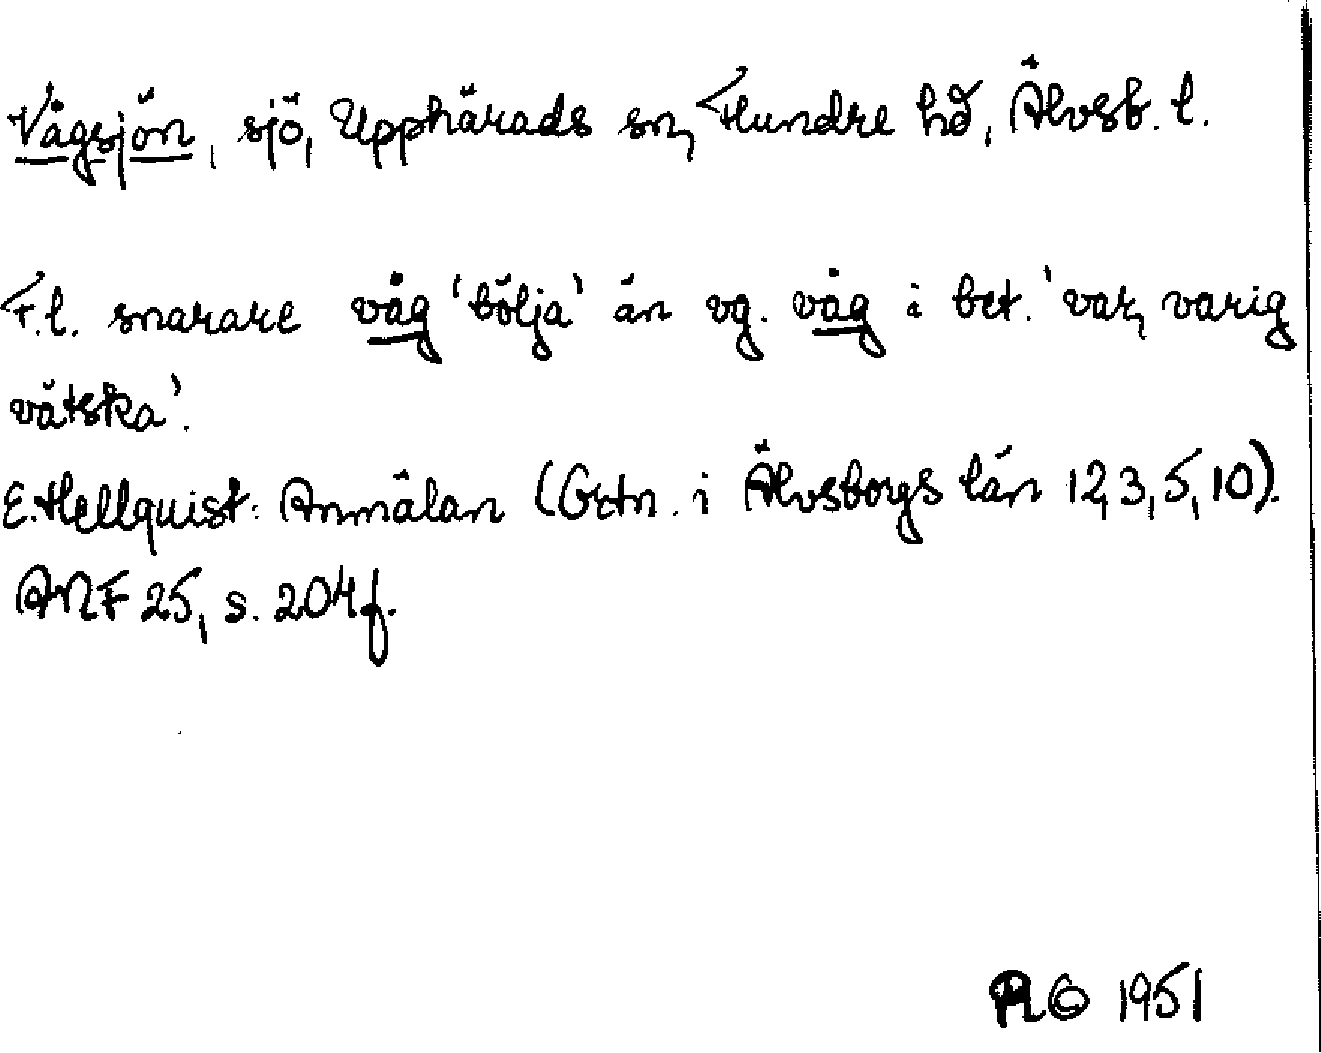 Vågsjön, sjö, Upphärads sn, Flundre hd, Älvsb. l.
F.l. snarare våg 'bölja' än vg. våg i bet. 'var, varig
vätska'.
E. Hellquist: Anmälan (Ortn. i Älvsborgs län 12, 3, 5, 10).
ANF 25, s. 204 f.
RG 1951